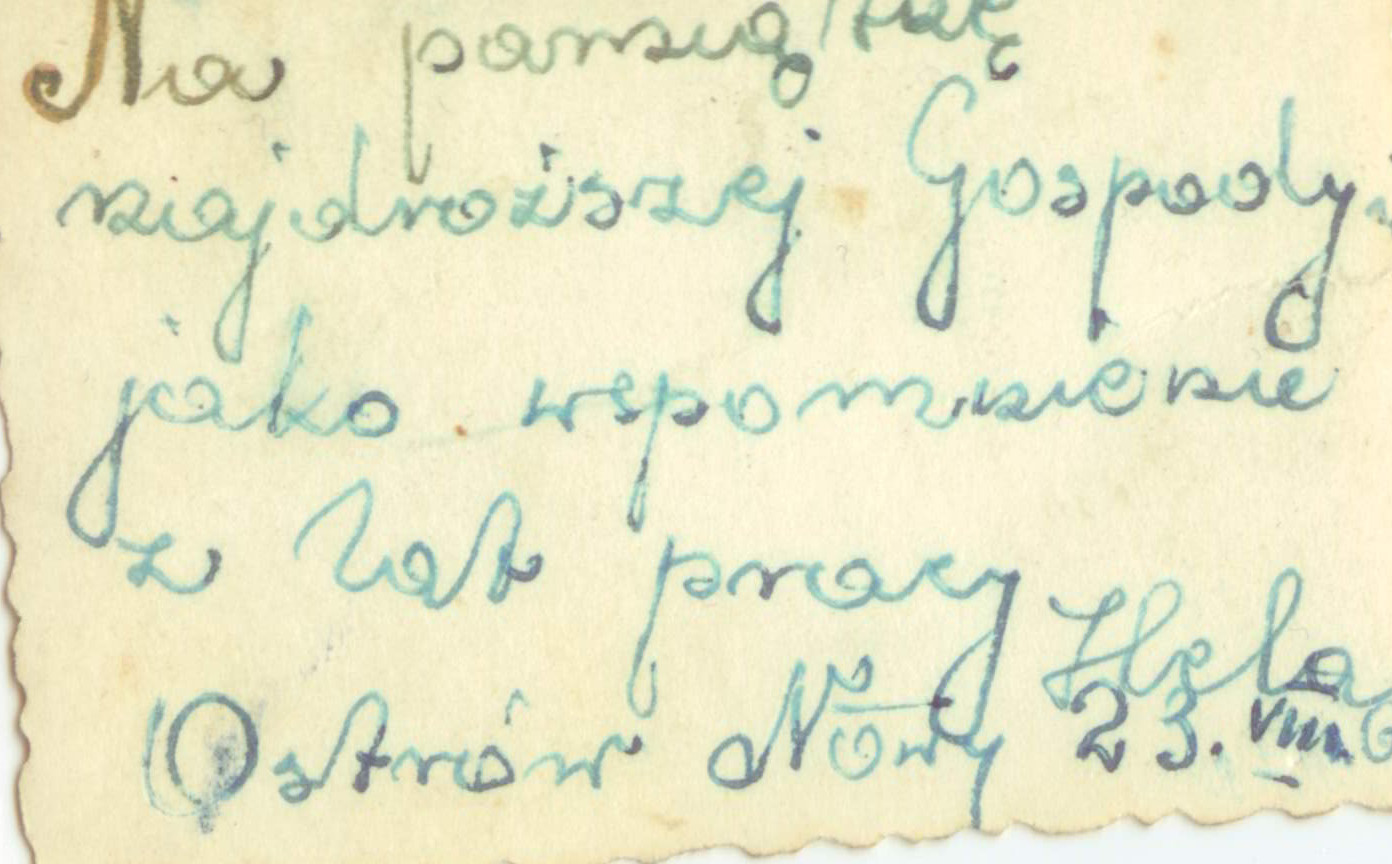 Na pamiątkę
najdroższej Gospody
jako wspomnienie
z lat pracy Hela
Ostrów Nowy 23. VIII.